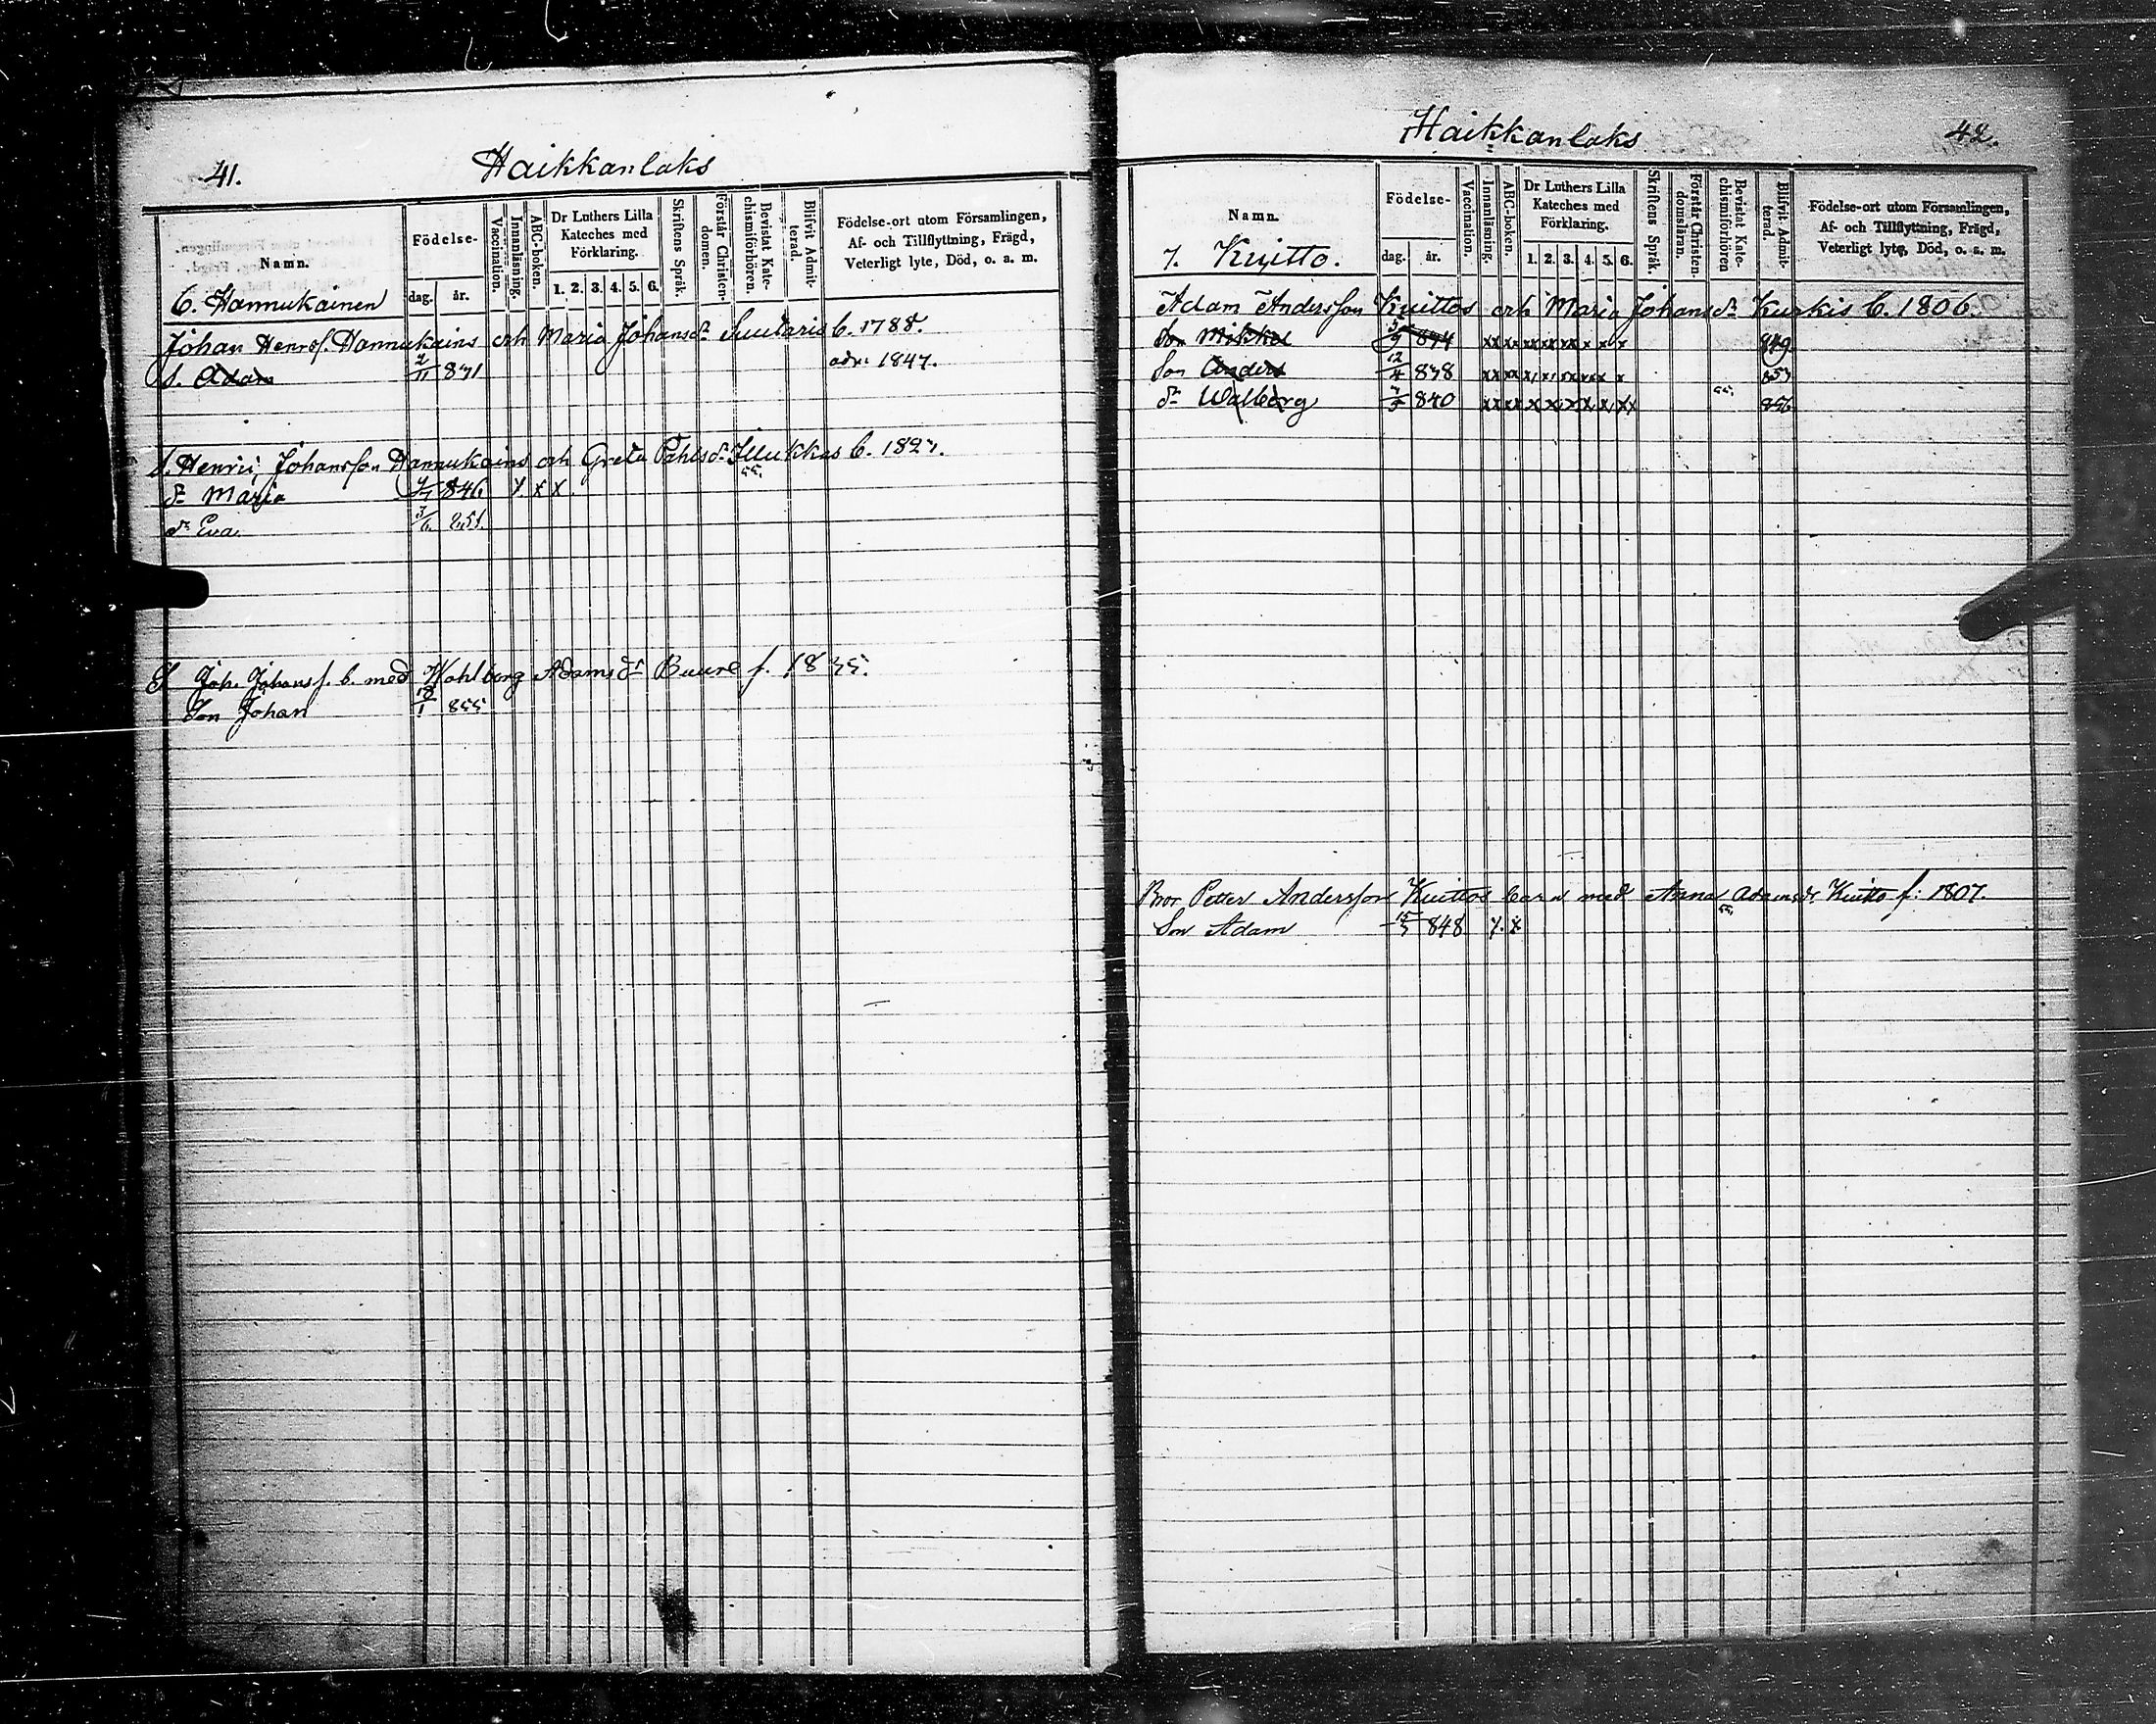 41.
Haikkanlaks
Namn.
Födelse-
dag. år.
Vaccination.
Innanläsning.
ABC-boken.
Dr Luthers Lilla
Kateches med
Förklaring.
1. 2. 3. 4. 5. 6.
Skriftens Språk.
Förstår Christen-
domen.
Bevistat Kate-
chismiförhören.
Blifvit Admit-
terad.
Födelse-ort utom Församlingen,
Af- och Tillflyttning, Frägd,
Veterligt lyte, Död, o. a. m.
6. Hannukainen
Johan Henrsf. Hannukains och Maria Johansdr b. 1788.
S. Adam 2/11 831 adm. 1847.
S. Henric Johansson Hannukains och Greta Påhlsdr Illukkas b.
55.
dr Maria 846 x x x
dr Eva 3/6 851.
Joh. Johansf. b. med Wahlborg Adamsdr Buure f. 1835.
Son Johan 18/1 855
Haikkanlaks
42.
Namn.
Födelse-
dag. år.
Vaccination.
Innanläsning.
ABC-boken.
Dr Luthers Lilla
Kateches med
Förklaring.
1. 2. 3. 4. 5. 6.
Skriftens Språk.
Förstår Christen-
domsläran.
Bevistat Kate-
chismiförhören
Blifvit Admit-
terad.
Födelse-ort utom Församlingen,
Af- och Tillflyttning, Frägd,
Veterligt lyte, Död, o. a. m.
7. Kuitto.
Adam Andersson Kuittos och Maria Johansdr Kurkis b. 1806.
Son Mikkel 849
Son Anders 12/4 838 853
dr Walborg 840 55. 856
Bror Petter Andersson Kuittos barn med Anna Adamsdr Kuitto f: 1807.
55.
Son Adam 848 x x